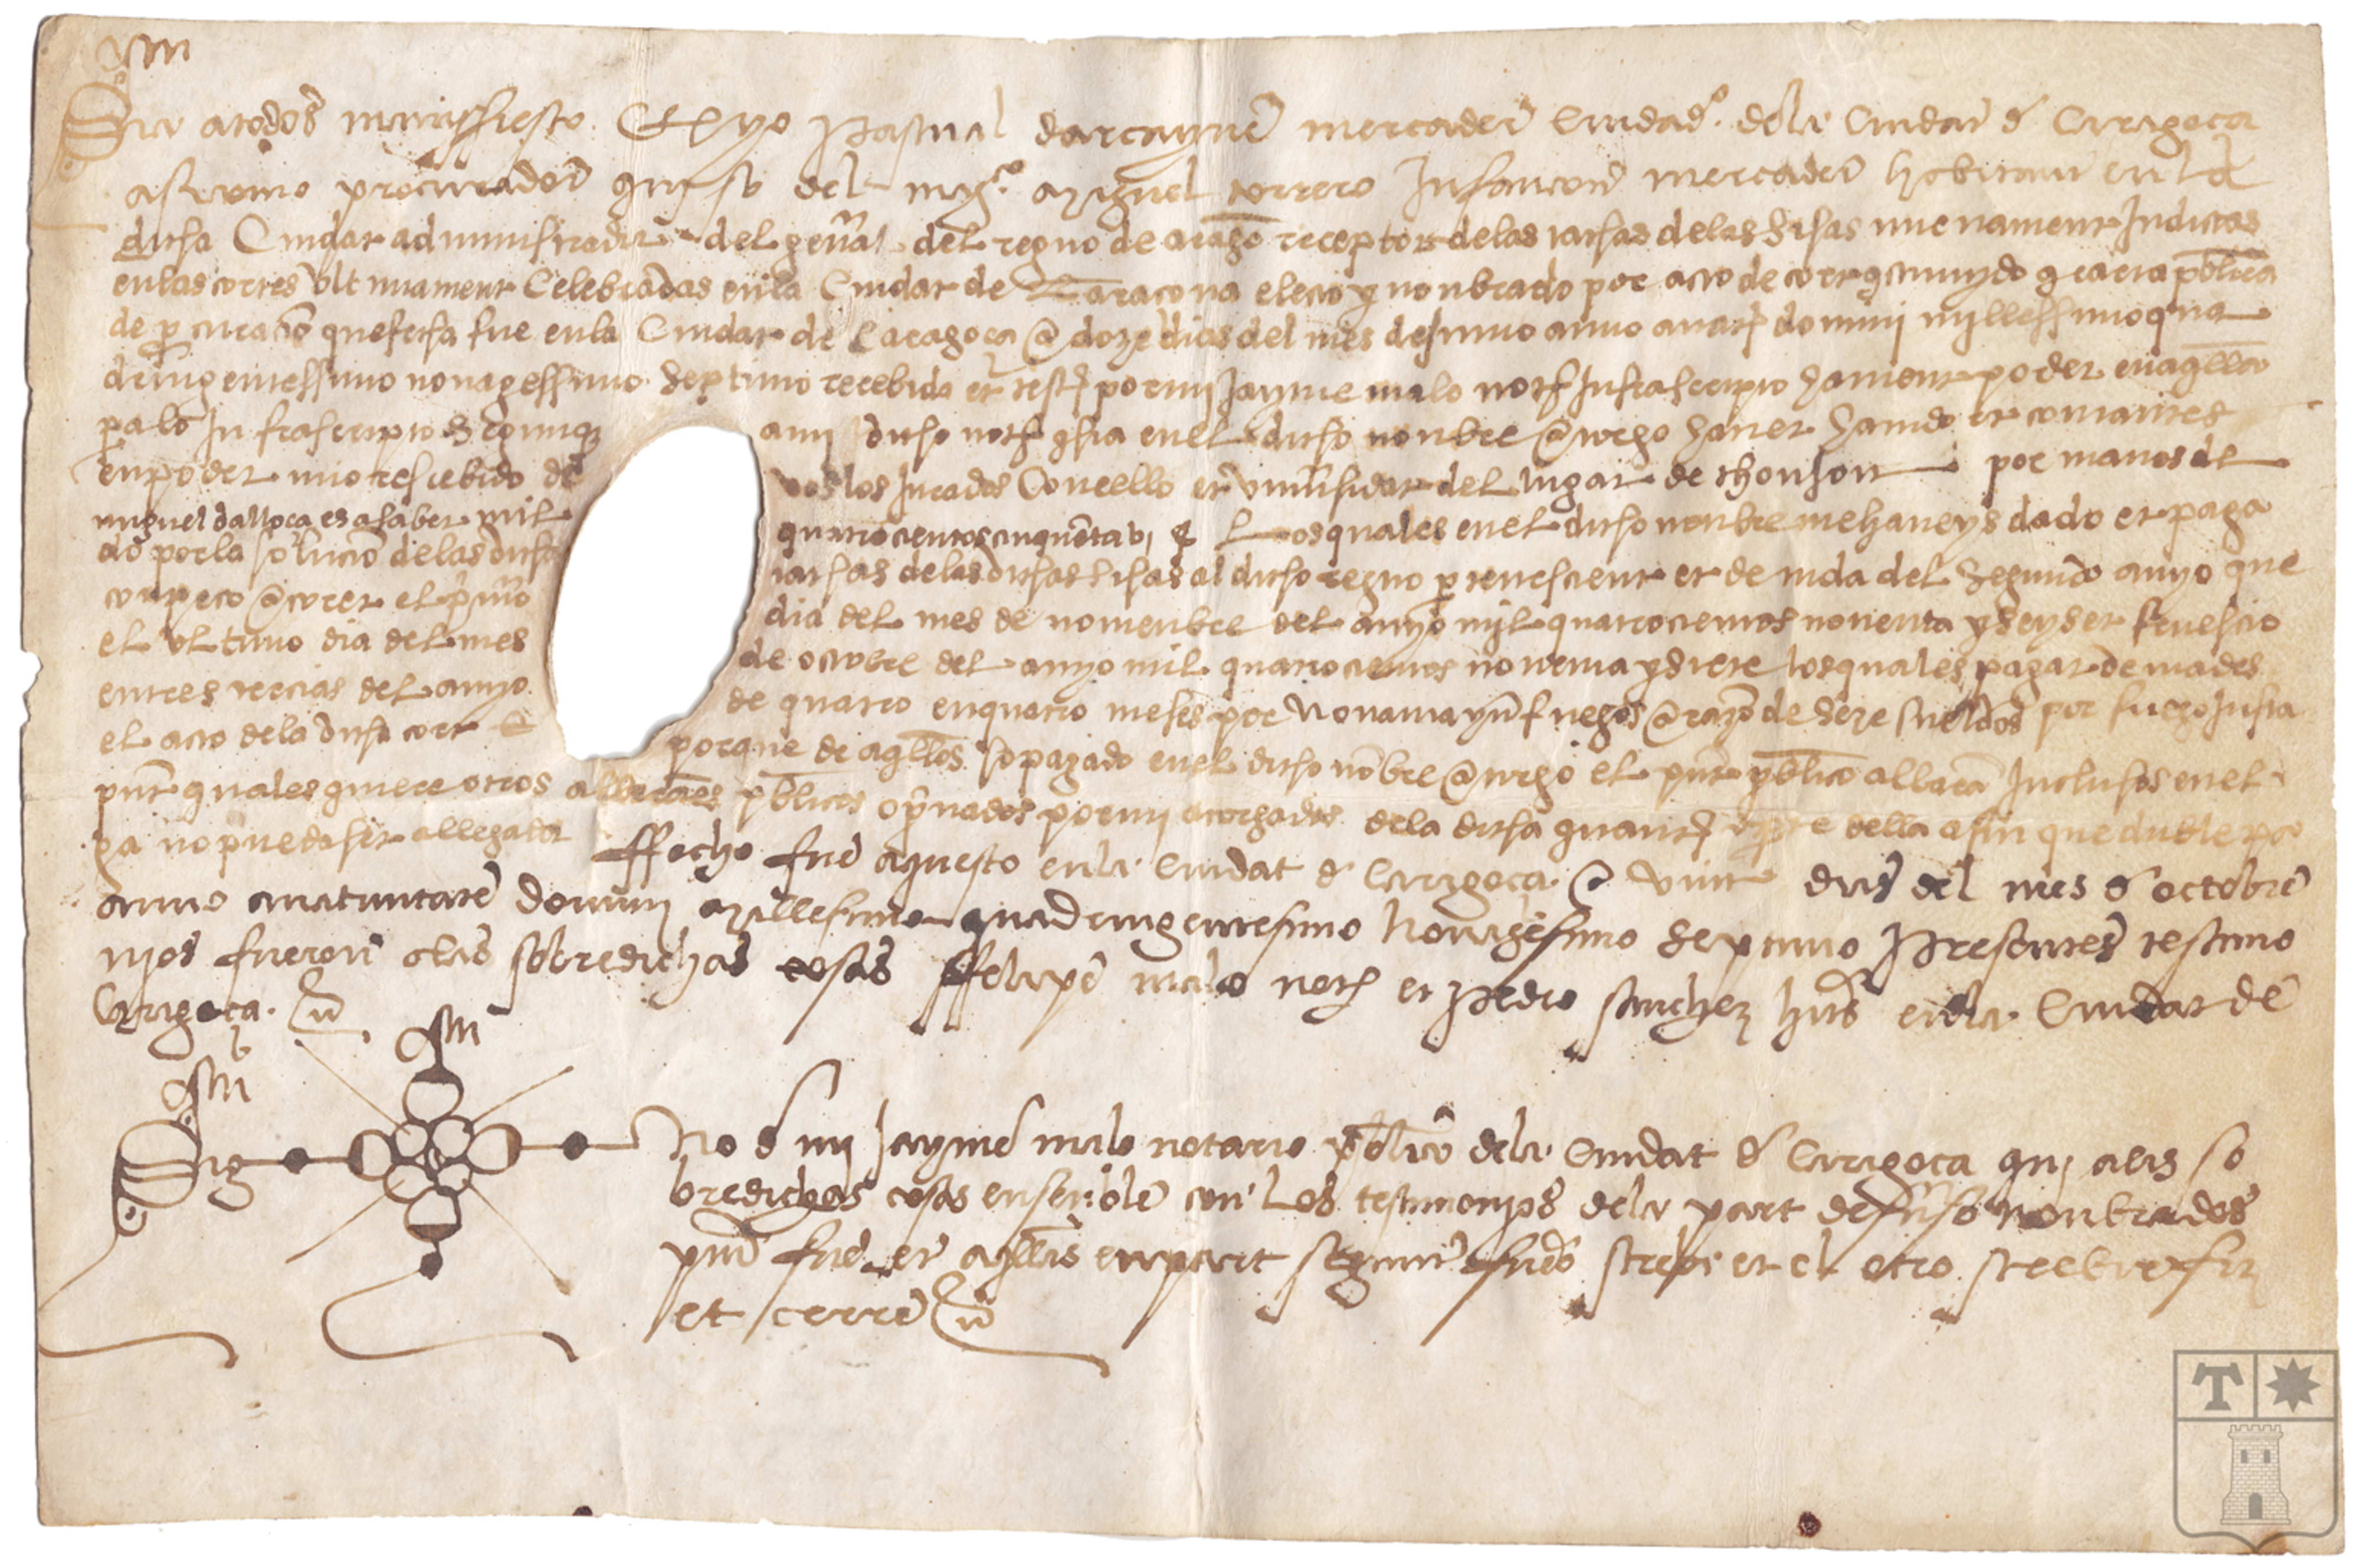 Jhs
Sia a todos manifiesto Que yo Pascual darcayne mercader Ciudadº dela Ciudat de Caragoca
asi como procurador qui so del magco Miguel torrero Infancon mercader habitant en la
dicha Ciudat administrador del general del regno de aragon receptor delas tachas delas Sisas nueuament Indictas
en las cortes vltimament Celebradas en la Ciudat de Taracona electo y nonbrado por acto de cort constituydo con carta publica
de procuracion que fecha fue en la Ciudat de Caragoca a doze dias del mes de junio anno a natiuitate domini millessimo qua
dringentessimo nonagessimo Septimo recebida et testificada por mi Jayme malo notario Infrascripto hauient poder en aquella
pa lo Infrascripto Segunque a mi dicho notario consta en el dicho nonbre atorgo hauer hauido et contantes
en poder mio rescebido de vos los Jurados Concello et vniuersidat del lugar de thonson por manos de
miguel dalloca es a saber mil quatrocientos cinquenta vi ss Los quales en el dicho nonbre me haueys dado et paga
do por la solucion delas dichas tachas delas dichas sisas al dicho regno pertenescient et deuida del Segundo anyo que
conpeco a correr el primero dia del mes de nouienbre del anyo mil quatrocientos nouenta y seys et fenescio
el vltimo dia del mes de octobre del anyo mil quatrocientos nouenta y siete los quales pagar deuiades
en tres tercias del anyo de quatro en quatro meses por Nouanta y un fuegos a razon de seze sueldos por fuego Justa
el acto dela dicha cort E porque de aquellos so pagado en el dicho nonbre atorgo el present publico albaran Inclusos en el
present quales quiere otros albaranes publicos o priuados por mi atorgados dela dicha quantia o part della a fin que duble pa
ga no pueda ser allegada ffecho fue aquesto en la Ciudat de Caragoca a vint dias del mes de octobre
anno a natiuitate domini Millesimo quadringentesimo Nonagesimo Septimo Presentes testimo
nios fueron alas sobredichas cosas ffelipe malo notario et Pedro sanchez habitantes en la Ciudat de
Caragoca
Jhs
Jhs
Sig no de mi Jayme malo notario publico dela Ciudat de Caragoca qui alas so
bredichas cosas ensemble con Los testimonios dela part desuso nonbrados
present fue et aquellas en part segunt fuero screbi et el otro screbir fiz
et cerre
T